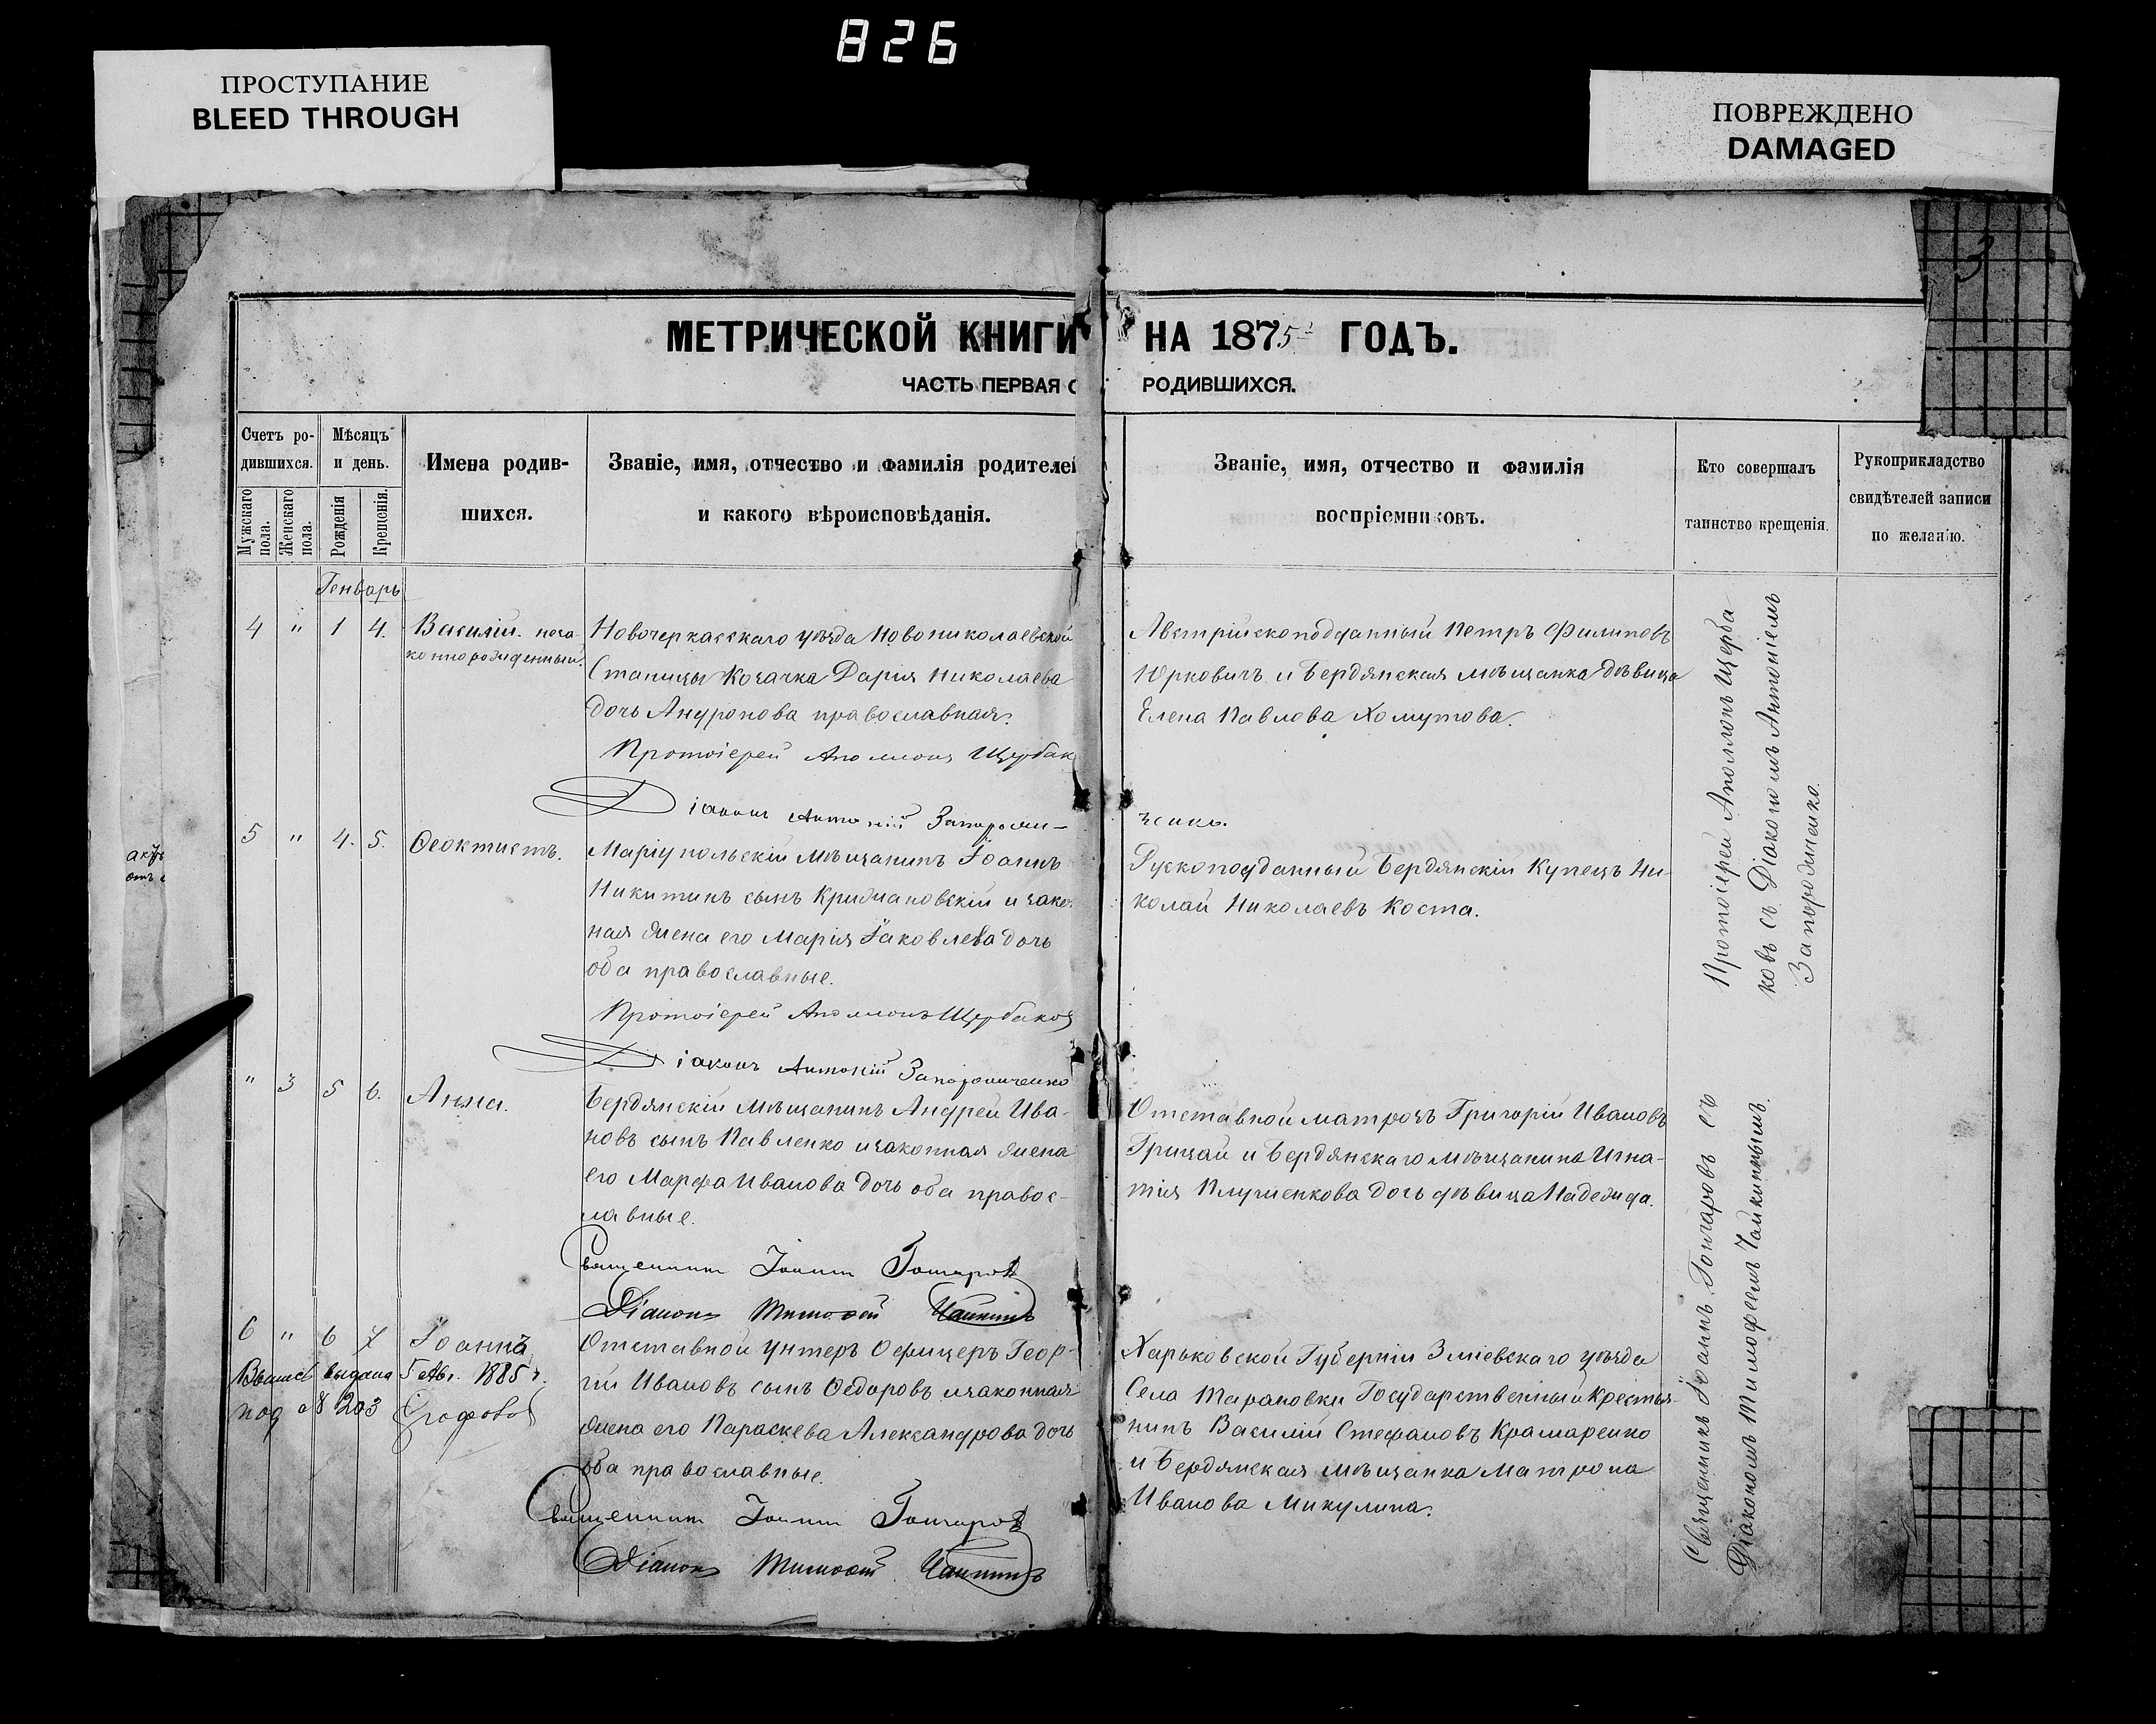 826
ПРОСТУПАНИЕ
BLEED THROUGH
ПОВРЕЖДЕНО
DAMAGED
3
МЕТРИЧЕСКОЙ КНИГИ НА 1875 ГОДЪ.
ЧАСТЬ ПЕРВАЯ О РОДИВШИХСЯ.
Счетъ ро-
дившихся.
Мужскаго пола.
Женскаго пола.
Мѣсяцъ
и день.
Рожденія
Крещенія.
Имена родив-
шихся.
Званіе, имя, отчество и фамилія родителей
и какого вѣроисповѣданія.
Званіе, имя, отчество и фамилія
воспріемниковъ.
Кто совершалъ
таинство крещенія.
Рукоприкладство
свидѣтелей записи
по желанію.
Генварь
4 " 1 4. Василій. неза-
коннорожденный.
Новочеркасскаго уѣзда Новониколаевской
Станицы Козачка Дарія Николаева
дочь Андронова православная.
Протоіерей Аполлонъ Щербак
Діаконъ Антоній Запорожи-
Австрійскоподданный Петръ Филиповъ
Юрковичъ и Бердянская мѣщанка дѣвица
Елена Павлова Хомутова.
ченко.
5 " 4. 5. Ѳеоктистъ.
Маріупольскій Мѣщанинъ Іоаннъ
Никитинъ сынъ Крижановскій и закон
ная жена его Марія Іаковлева дочь
оба православные.
Протоіерей Аполлонъ Щербаковъ
Діаконъ Антоній Запорожченко
Рускоподданный Бердянскій Купецъ Ни-
колай Николаевъ Коста.
Протоіерей Аполлонъ Щерба
ковъ съ Діакономъ Антоніемъ
Запорожченко.
" 3 5 6. Анна.
Бердянскій Мѣщанинъ Андрей Ива-
новъ сынъ Павленко и законная жена
его Марфа Иванова дочь оба правос-
лавные.
Священник Іоанн Гончаровъ
Діаконъ Тимоѳей Чайкинъ
Отставной матрозъ Григорій Ивановъ
Грицай и Бердянскаго мѣщанина Игна-
тія Плуженкова дочь дѣвица Надежда.
6 " 6 7 Іоаннъ
Выпись выдана 5 Авг. 1885 г.
под № 203
Отставной Унтеръ Офицеръ Геор-
гій Ивановъ сынъ Ѳедоровъ и законная
жена его Параскева Александрова дочь
оба православные.
Священник Іоанн Гончаровъ
Діаконъ Тимоѳей Чайкинъ
Харьковской Губерніи Зміевскаго уѣзда
Села Тарановки Государственный Крестья-
нинъ Василій Стефановъ Крамаренко
и Бердянская мѣщанка Матрона
Иванова Микулина.
Священникъ Іоаннъ Гончаровъ съ
Діакономъ Тимофеемъ Чайкинымъ.